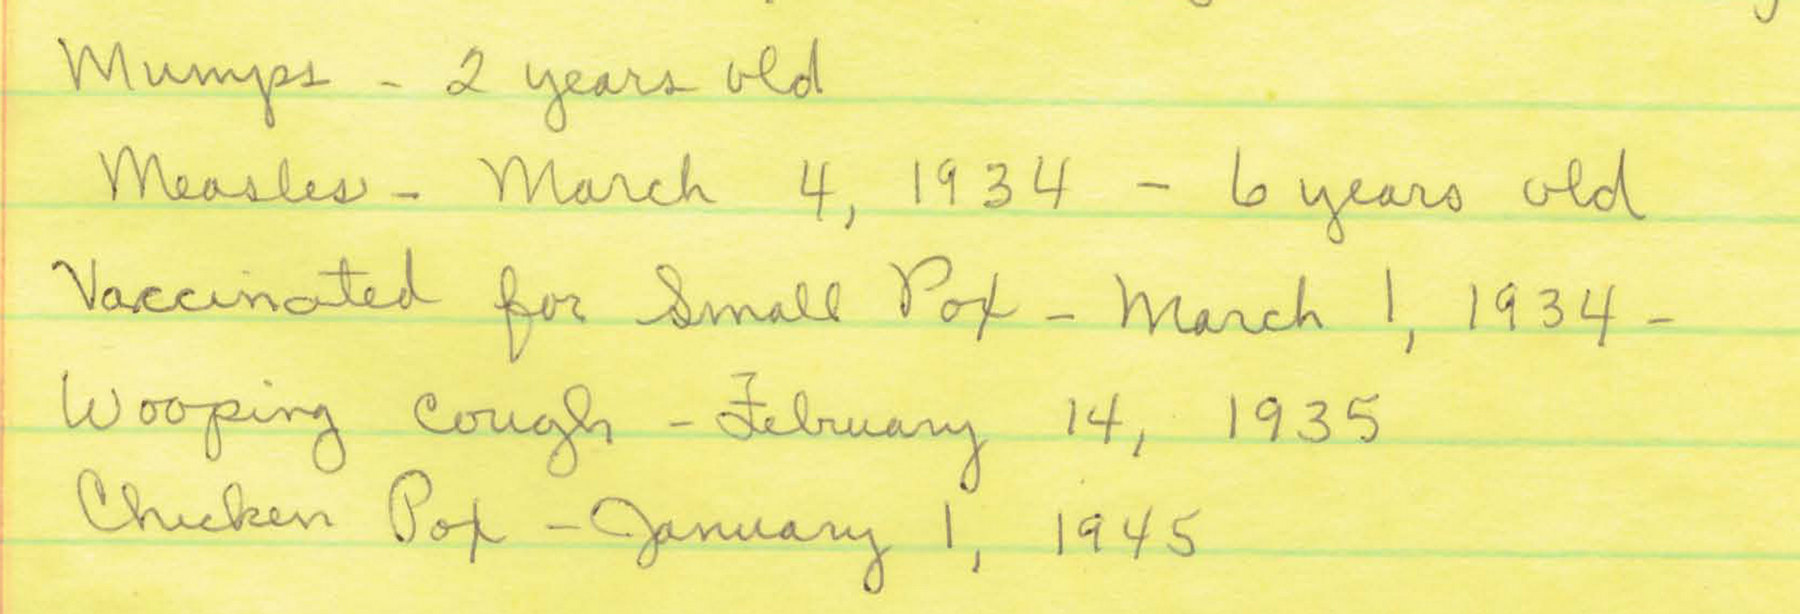 Mumps - 2 years old
Measles - March 4, 1934 - 6 years old
Vaccinated for Small Pox - March 1, 1934 -
Wooping Cough - February 14, 1935
Chicken Pox - January 1, 1945